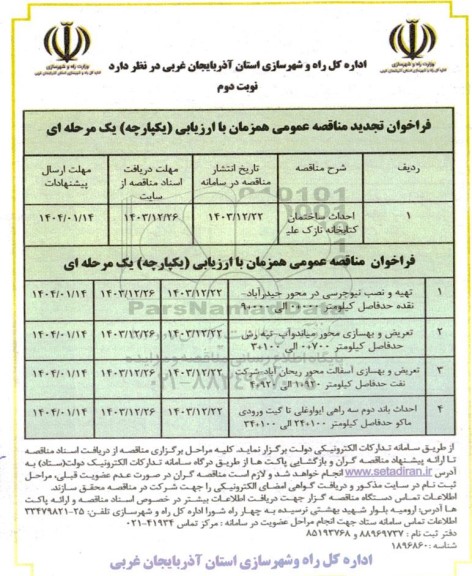 وزارت راه و شهرسازی
اداره کل راه و شهرسازی استان آذربایجان غربی
وزارت راه و شهرسازی
اداره کل راه و شهرسازی استان آذربایجان غربی
اداره کل راه و شهرسازی استان آذربایجان غربی در نظر دارد
نوبت دوم
فراخوان تجدید مناقصه عمومی همزمان با ارزیابی (یکپارچه) یک مرحله ای
ردیف شرح مناقصه تاریخ انتشار مناقصه در سامانه مهلت دریافت اسناد مناقصه از سایت مهلت ارسال پیشنهادات
۱ احداث ساختمان کتابخانه نازک علیا ۱۴۰۳/۱۲/۲۲ ۱۴۰۳/۱۲/۲۶ ۱۴۰۴/۰۱/۱۴
فراخوان مناقصه عمومی همزمان با ارزیابی (یکپارچه) یک مرحله ای
۱ تهیه و نصب نیوجرسی در محور حیدرآباد- نقده حدفاصل کیلومتر ۰۰+۰۰۰ الی ۹+۰۰۰ ۱۴۰۳/۱۲/۲۲ ۱۴۰۳/۱۲/۲۶ ۱۴۰۴/۰۱/۱۴
۲ تعریض و بهسازی محور میاندوآب- تپه رش حدفاصل کیلومتر ۰۰+۷۰۰ الی ۳+۱۰۰ ۱۴۰۳/۱۲/۲۲ ۱۴۰۳/۱۲/۲۶ ۱۴۰۴/۰۱/۱۴
۳ تعریض و بهسازی آسفالت محور ریحان آباد-شرکت نفت حدفاصل کیلومتر ۱+۹۲۰ الی ۴+۹۲۰ ۱۴۰۳/۱۲/۲۲ ۱۴۰۳/۱۲/۲۶ ۱۴۰۴/۰۱/۱۴
۴ احداث باند دوم سه راهی ایواوغلی تا گیت ورودی ماکو حدفاصل کیلومتر ۲۴+۱۰۰ الی ۳۴+۱۰۰ ۱۴۰۳/۱۲/۲۲ ۱۴۰۳/۱۲/۲۶ ۱۴۰۴/۰۱/۱۴
ParsNamadData
۰۲۱-۸۸۳۴۹۶۷۰
از طریق سامانه تدارکات الکترونیکی دولت برگزار نماید. کلیه مراحل برگزاری مناقصه از دریافت اسناد مناقصه
تا ارائه پیشنهاد مناقصه گران و بازگشایی پاکت ها از طریق درگاه سامانه تدارکات الکترونیک دولت(ستاد) به
آدرس www.setadiran.ir انجام خواهد شد و لازم است مناقصه گران در صورت عدم عضویت قبلی، مراحل
ثبت نام در سایت مذکور و دریافت گواهی امضای الکترونیکی را جهت شرکت در مناقصه محقق سازند.
اطلاعات تماس دستگاه مناقصه گزار جهت دریافت اطلاعات بیشتر در خصوص اسناد مناقصه و ارائه پاکت
ها: آدرس: ارومیه بلوار شهید بهشتی نرسیده به چهار راه شورا اداره کل راه و شهرسازی تلفن: ۲۵-۳۳۴۷۹۸۲۱
اطلاعات تماس سامانه ستاد جهت انجام مراحل عضویت در سامانه : مرکز تماس ۴۱۹۳۴-۰۲۱
دفتر ثبت نام : ۸۸۹۶۹۷۳۷ و ۸۵۱۹۳۷۶۸
شناسه :۱۸۹۶۸۶۰
اداره کل راه وشهرسازی استان آذربایجان غربی